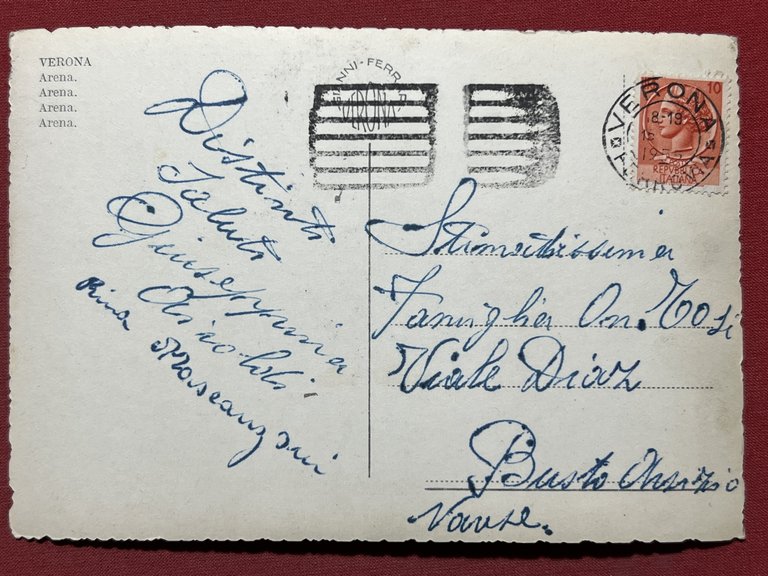 VERONA
Arena.
Arena.
Arena.
Arena.
VERONA
VERONA
18-19
10
REPVBBLICA
ITALIANA
Distinti
Saluti
Giuseppina
Rina
Stimatissima
Famiglia On. Tosi
Viale Diaz
Busto Arsizio
Varese.